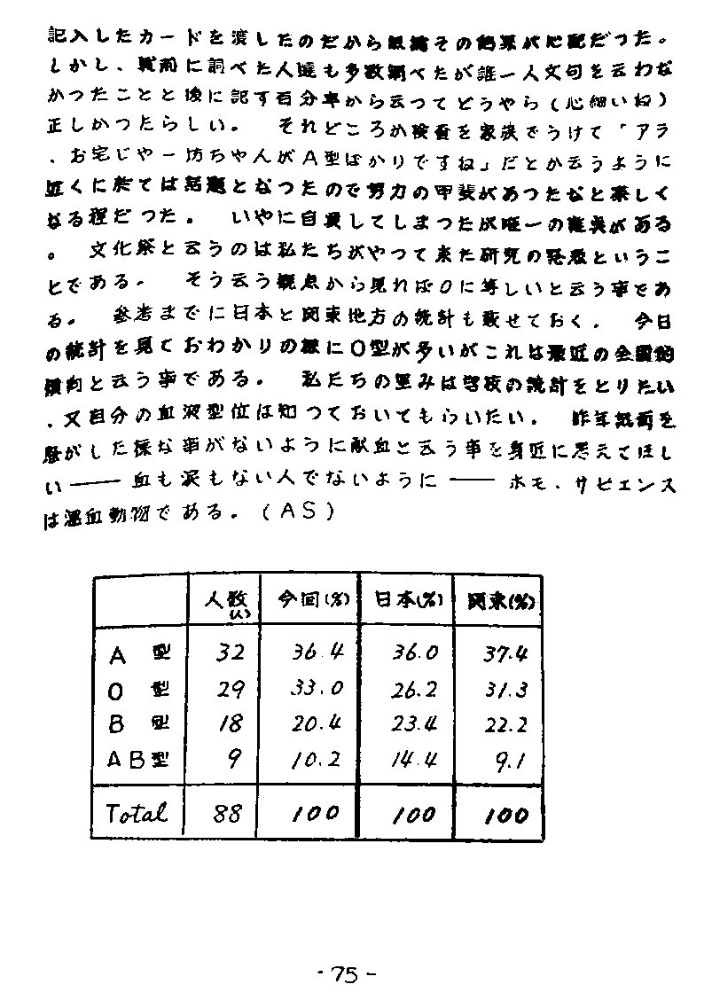 記入したカードを渡したのだから結構その結果が心配だった。
しかし、戦前に調べた人達も多数調べたが誰一人文句を云わな
かったことと後に記す百分率から云ってどうやら(心細いね)
正しかったらしい。 それどころか検査を家族でうけて「アラ
、お宅じゃー坊ちゃんがA型ばかりですね」だとか云うように
近くに於ては話題となったので努力の甲斐があったなと楽しく
なる程だった。 いやに自賛してしまったが唯一の難点がある
。 文化祭と云うのは私たちがやって来た研究の発表というこ
とである。 そう云う観点から見れば0に等しいと云う事であ
る。 参考までに日本と関東地方の統計も載せておく。 今日
の統計を見ておわかりの様にO型が多いがこれは最近の全国的
傾向と云う事である。 私たちの望みは学校の統計をとりたい
、又自分の血液型位は知っておいてもらいたい。 昨年紙面を
騒がした様な事がないように献血と云う事を身近に考えてほし
い―― 血も涙もない人でないように ―― ホモ・サピエンス
は温血動物である。(AS)
人数(人) 今回(%) 日本(%) 関東(%)
A 型 32 36.4 36.0 37.4
O 型 29 33.0 26.2 31.3
B 型 18 20.4 23.4 22.2
AB型 9 10.2 14.4 9.1
Total 88 100 100 100
- 75 -